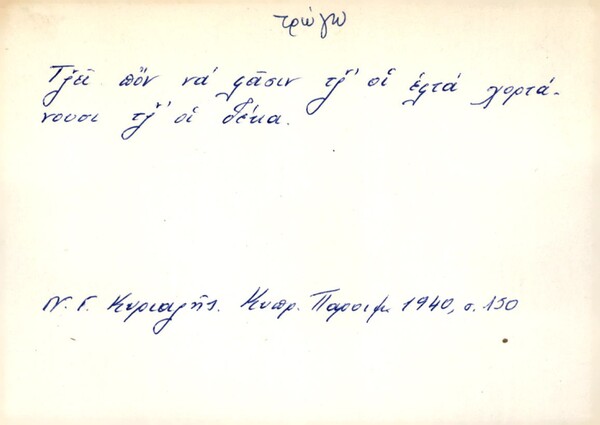 τρώγω
Τζ̌εῖ πὄν νά φᾶσιν τζ̌' οἱ ἑφτά χορτά-
νουσι τζ̌' οἱ δέκα.
Ν. Γ. Κυριαζῆς. Κυπρ. Παροιμ. 1940, σ. 150